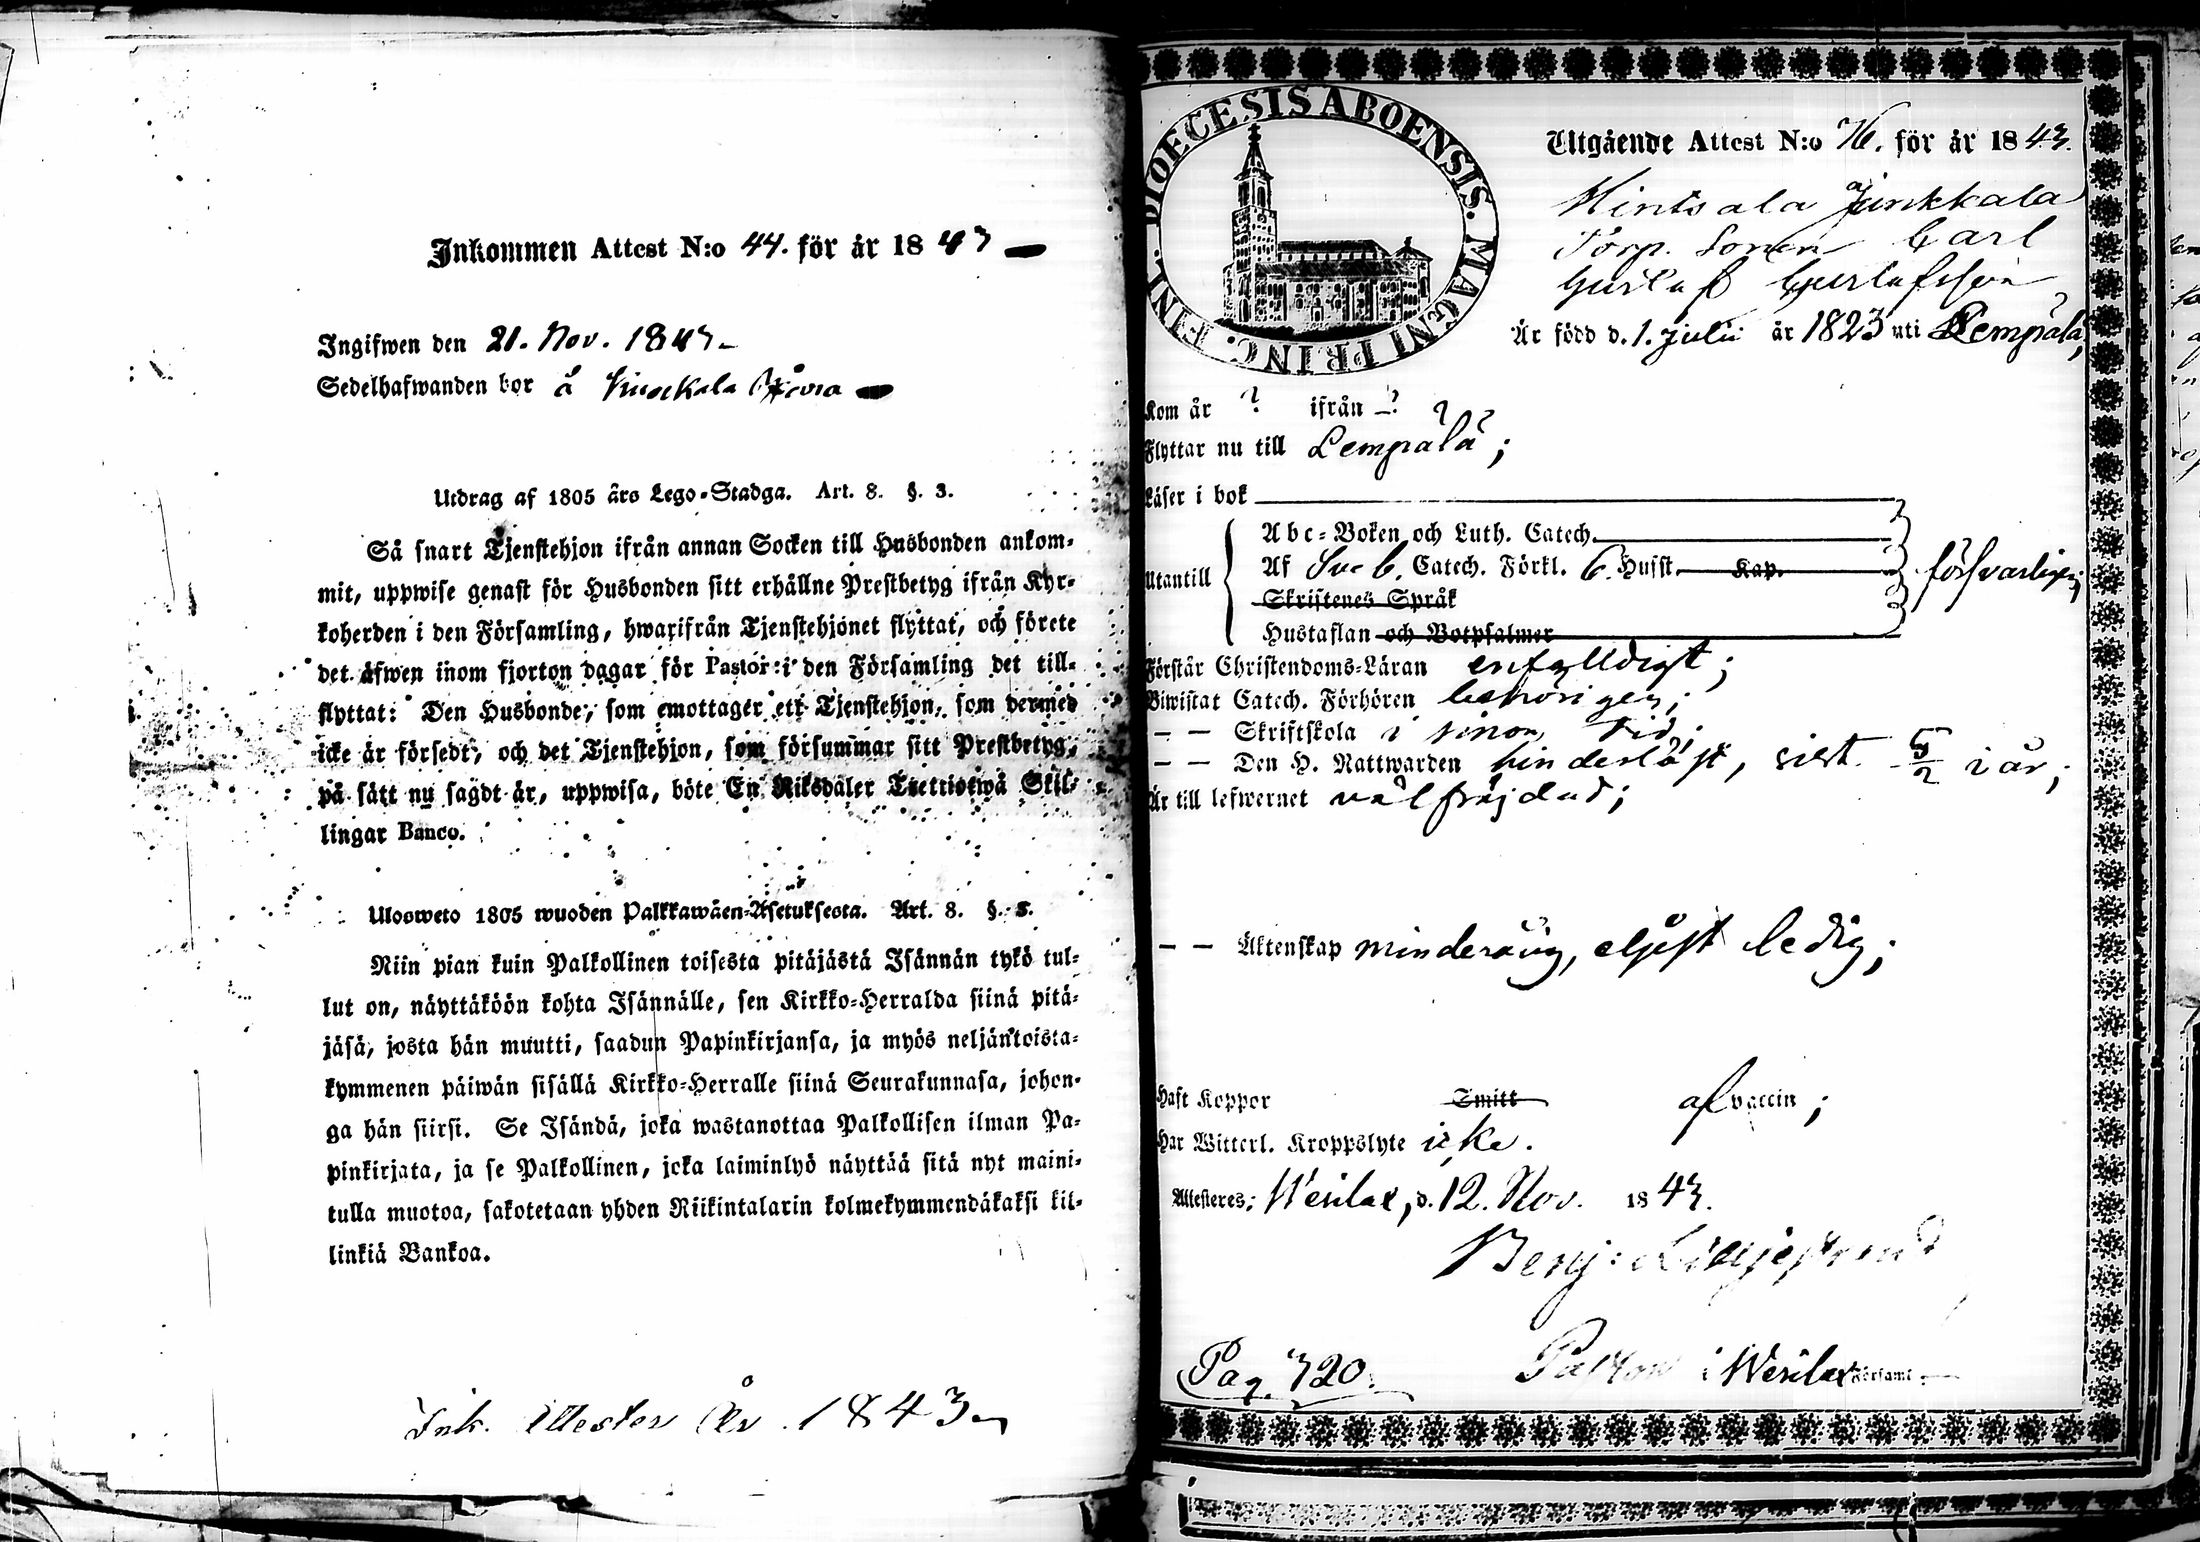 Inkommen Attest N:o 44. för år 1843
Ingifwen den 21. Nov. 1843
Sedelhafwanden bor å
Utdrag af 1805 års Lego-Stadga. Art. 8. §. 3.
Så snart Tjenstehjon ifrån annan Socken till Husbonden ankom-
mit, uppwise genast för Husbonden sitt erhållne Prestbetyg ifrån Kyr-
koherden i den Församling, hwarifrån Tjenstehjonet flyttat, och förete
det äfwen inom fjorton dagar för Pastor i den Församling det till-
flyttat: Den Husbonde, som emottager ett Tjenstehjon, som dermed
icke är försedt, och det Tjenstehjon, som försummar sitt Prestbetyg,
på sätt nu sagdt är, uppwisa, böte En Riksdaler Trettiotwå Skil-
lingar Banco.
Ulosweto 1805 wuoden Palkkawäen-Asetuksesta. Art. 8. §. 3.
Niin pian kuin Palkollinen toisesta pitäjästä Isännän tykö tul-
lut on, näyttäköön kohta Isännälle, sen Kirkko-Herralda siinä pitä-
jäsä, josta hän muutti, saadun Papinkirjansa, ja myös neljäntoista-
kymmenen päiwän sisällä Kirkko-Herralle siinä Seurakunnasa, johon-
ga hän siirsi. Se Isändä, joka wastanottaa Palkollisen ilman Pa-
pinkirjata, ja se Palkollinen, joka laiminlyö näyttää sitä nyt maini-
tulla muotoa, sakotetaan yhden Riikintalarin kolmekymmendäkaksi kil-
linkiä Bankoa.
Ink. Attester År 1843
DIOECESIS ABOENSIS. MAGNI PRINC. FINL.
Utgående Attest N:o 76. för år 1843.
Hintsala Junkkala
Torp. Sonen Carl
Gustaf Gustafsson
Är född d. 1. Julii år 1823 uti Lempälä,
Kom år ? ifrån ?
Flyttar nu till Lempälä;
Läser i bok
Utantill
Abc-Boken och Luth. Catech.
Af Sve b. Catech. Förkl. 6. Husst. Kap. försvarligen;
Skriftenes Språk
Hustaflan och Botpsalmer
Förstår Christendoms-Läran enfalldigt;
Biwistat Catech. Förhören behörigen;
— — Skriftskola i sinom tid;
— — Den H. Nattwarden sist 5/2 i år;
Är till lefwernet välfräjdad;
— — Äktenskap minderårig, eljest ledig;
Haft Koppor Smitt af vaccin;
Har Witterl. Kroppslyte icke.
Attesteres; Wesilax, d. 12. Nov. 1843.
Benj: Lilljestrand
Pastor i Wesilax Församl.
Pag. 720.